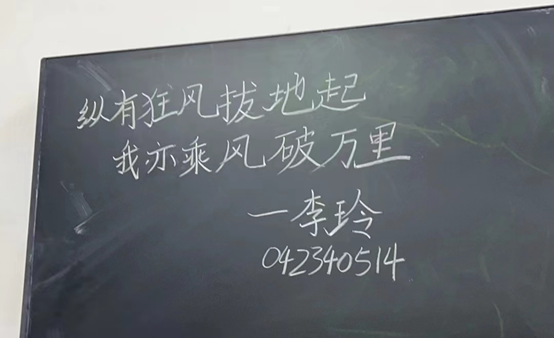 纵有狂风拔地起
我亦乘风破万里
一李玲
042340514